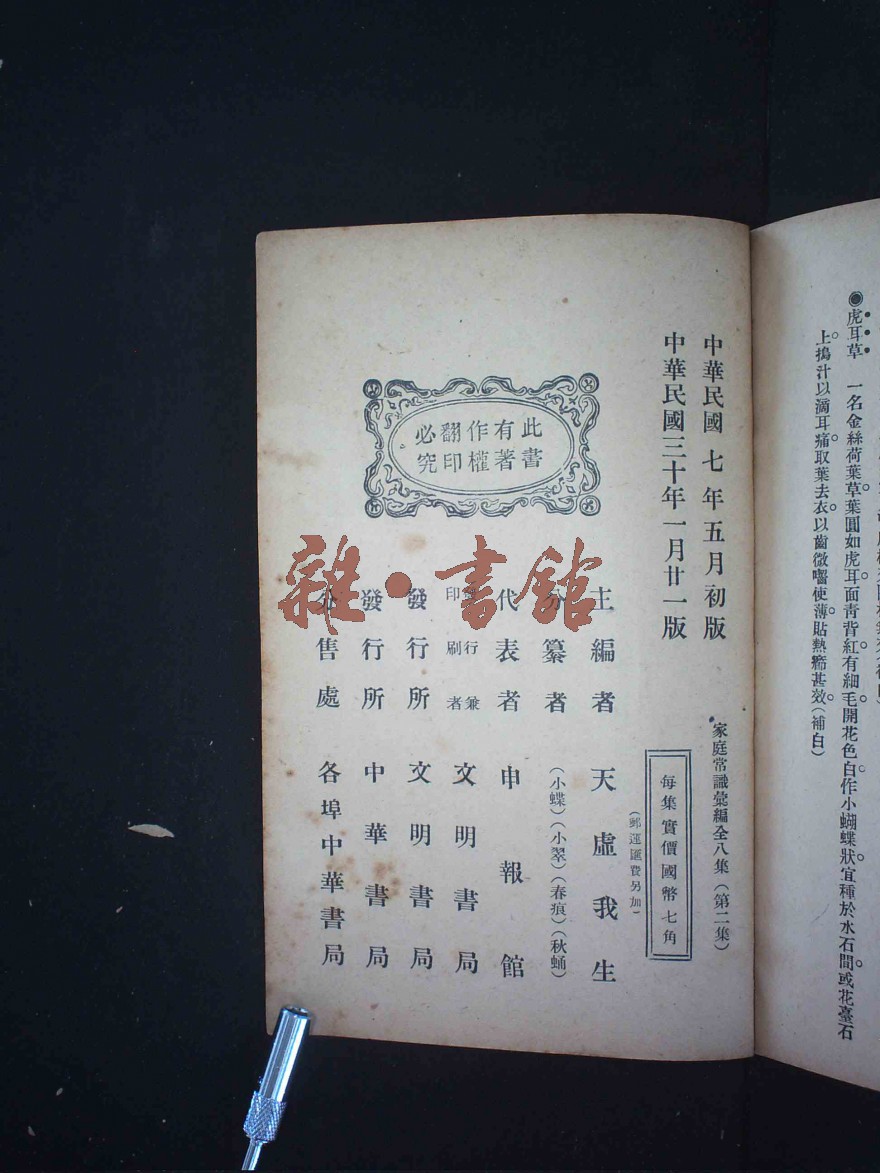 ●虎耳草　一名金絲荷葉草葉圓如虎耳面靑背紅有細毛開花色白作小蝴蝶狀宜種於水石間或花臺石
上搗汁以滴耳痛取葉去衣以齒微嚙使薄貼熱癤甚效(補白)
中華民國七年五月初版
中華民國三十年一月廿一版
家庭常識彙編全八集(第二集)
每集實價國幣七角
(郵運匯費另加)
主編者　天虛我生
分纂者　(小蝶)(小翠)(春痕)(秋蛹)
代表者　申報館
發行兼印刷者　文明書局
發行所　文明書局
發行所　中華書局
分售處　各埠中華書局
此書
有著
作權
翻印
必究
雜·書館